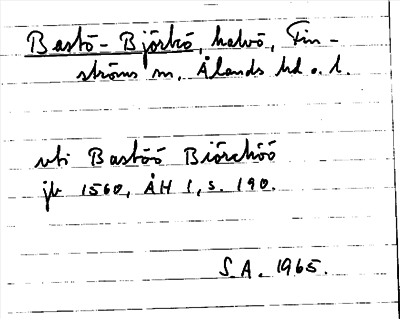 Bastö-Björkö, halvö, Fin-
ströms sn, Ålands hd o. l.
uti Bastöö Biörcköö
jb 1560, ÅH 1, s. 190.
S.A. 1965.